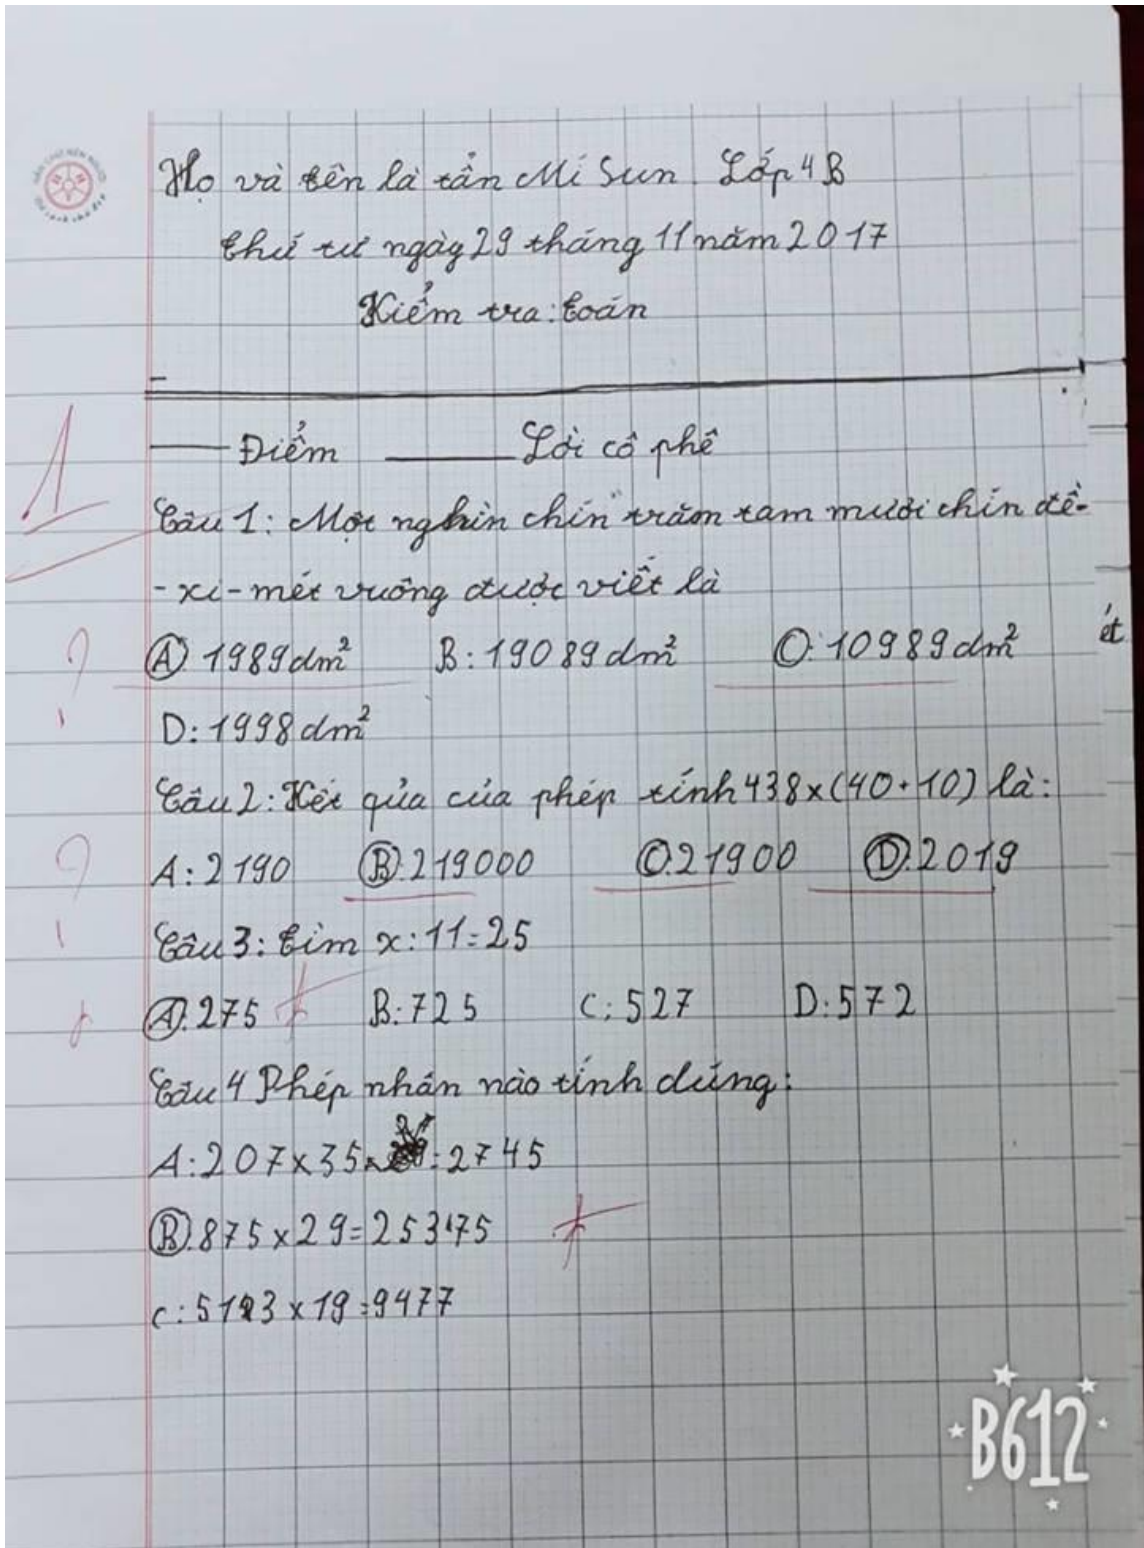 Họ và tên là tẩn Mí Sun Lớp 4B
thứ tư ngày 29 tháng 11 năm 2017
Kiểm tra: toán
Điểm Lời cô phê
Câu 1: Một nghìn chín trăm tam mười chín đề-
-xi-mét vuông được viết là
A 1989dm² B: 19089dm² C: 10989dm²
ét
D: 1998dm²
Câu 2: Kết qủa của phép tính 438x(40+10) là:
A: 2190 B. 219000 C. 21900 D. 2019
Câu 3: tìm x: 11 = 25
A. 275 B: 725 C: 527 D: 572
Câu 4 Phép nhân nào tính đúng:
A: 207x35 = 2745
B. 875x29 = 25375
C: 5123x19 = 9477
B612